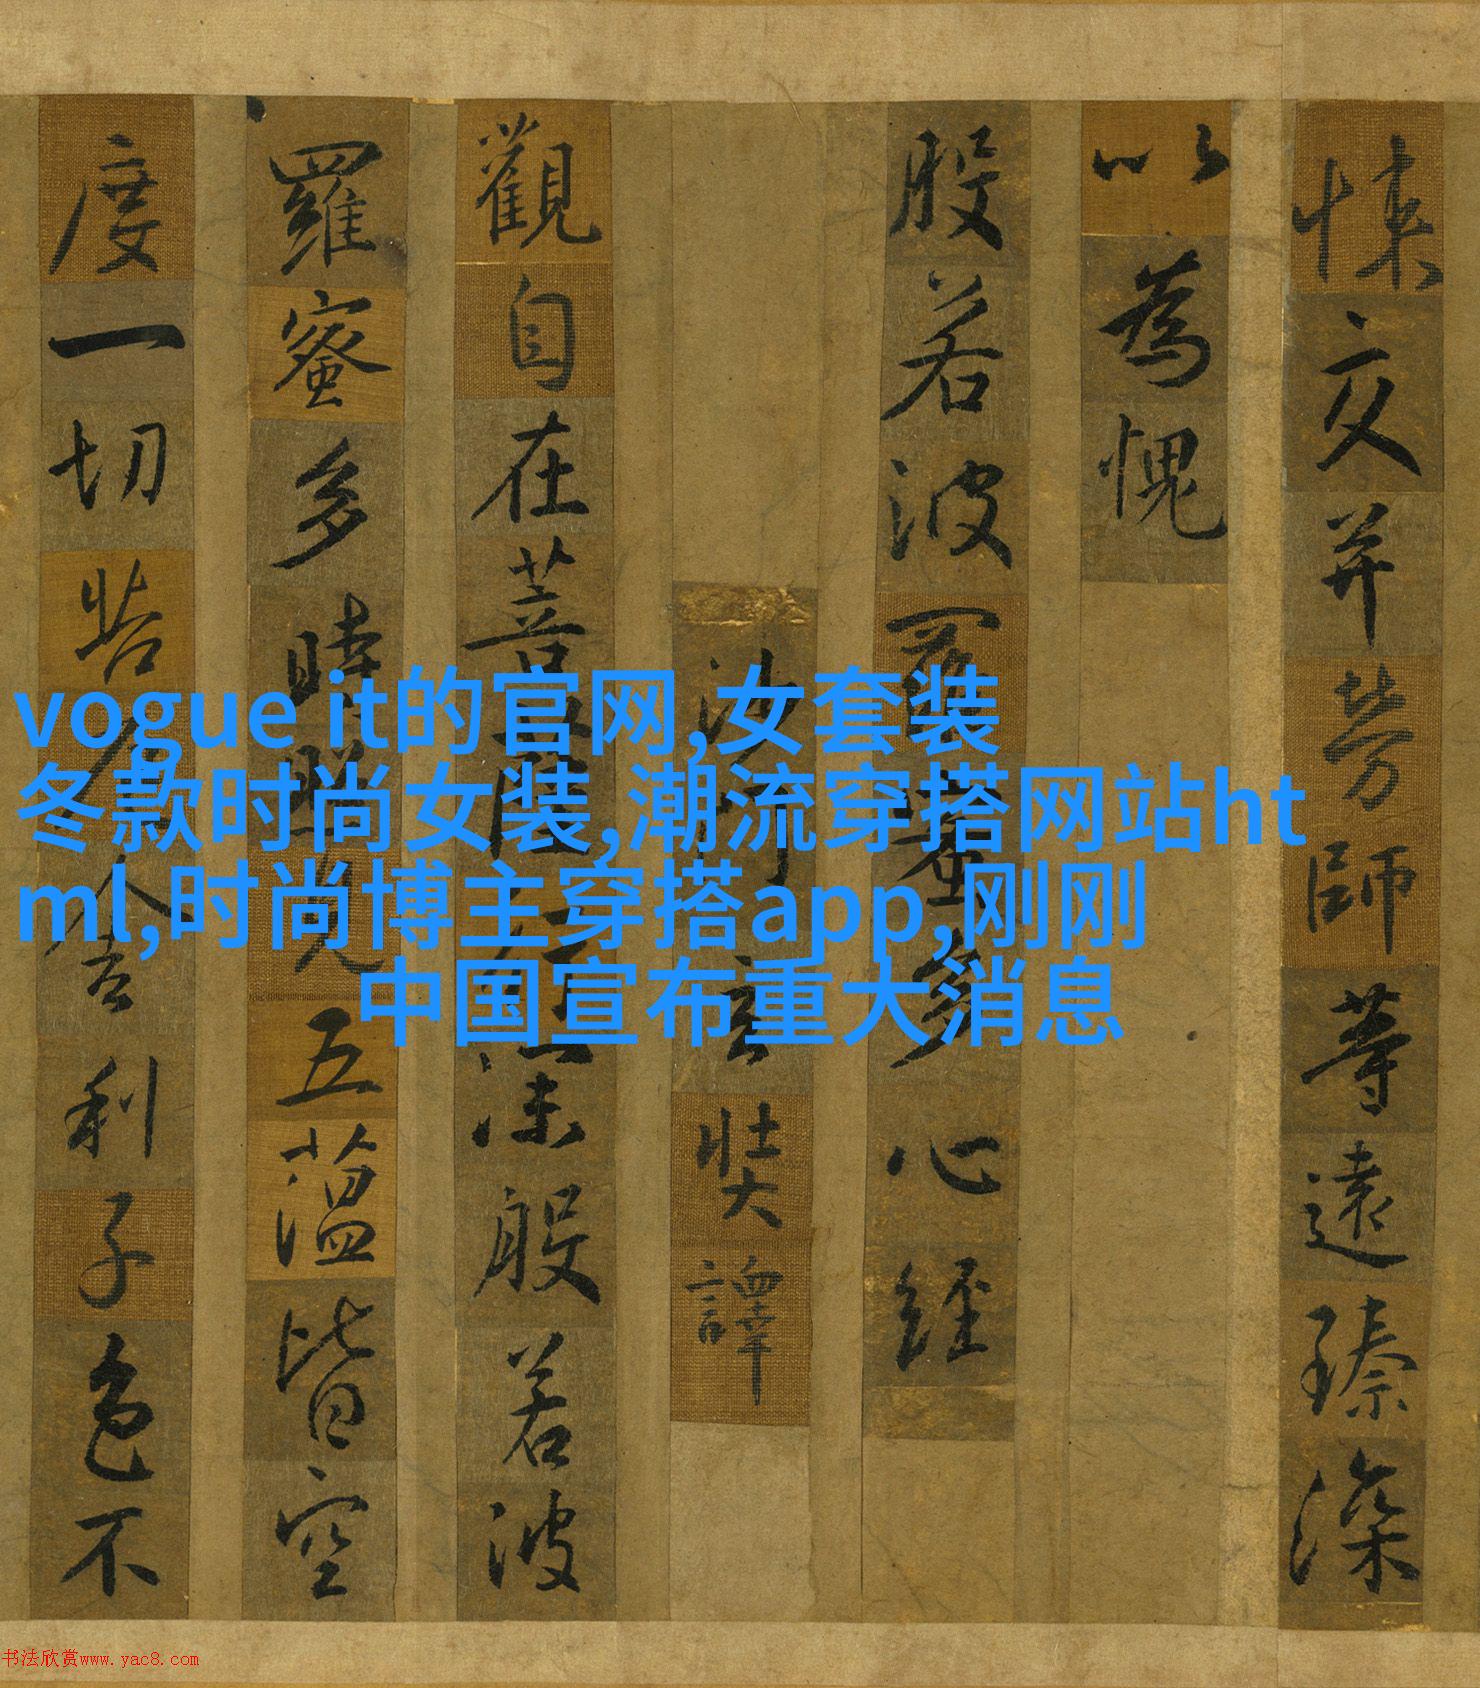 悚交并勞師等遠臻深
以為愧
般若波羅蜜多心經
沙門玄奘譯
觀自在菩薩行深般若波
羅蜜多時照見五蘊皆空
度一切苦厄舍利子色不
vogue it的官网,女套装
冬款时尚女装,潮流穿搭网站ht
ml,时尚博主穿搭app,刚刚
中国宣布重大消息
书法欣赏www.yac8.com